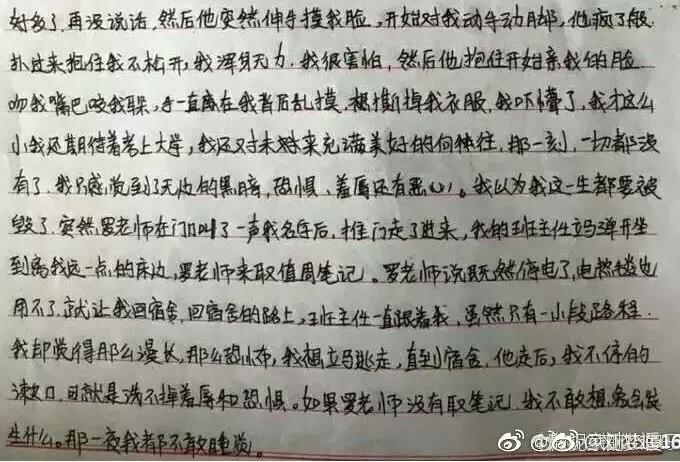 好多了,再没说话,然后他突然伸手摸我脸,开始对我动手动脚,他疯了般
扑过来抱住我不松开,我浑身无力,我很害怕,然后他抱住开始亲我的脸
吻我嘴巴咬我耳朵,手一直在我背后乱摸,想撕掉我衣服,我吓懵了,我才这么
小我还期待着考上大学,我还对未来充满美好的向往,那一刻,一切都没
有了,我只感觉到了无边的黑暗,恐惧、羞辱还有恶心。我以为我这一生都要被
毁了,突然罗老师在门口叫了一声我名字后,推门走了进来,我的班主任立马弹开坐
到离我远一点的床边,罗老师来取值周笔记。罗老师说既然停电了,电热毯也
用不了,就让我回宿舍,回宿舍的路上,班主任一直跟着我,虽然只有一小段路程.
我却觉得那么漫长,那么恐怖,我想立马逃走,直到宿舍,他走后,我不停的
漱口,可就是洗不掉羞辱和恐惧。如果罗老师没有取笔记,我不敢想象会发
生什么。那一夜我都不敢睡觉。